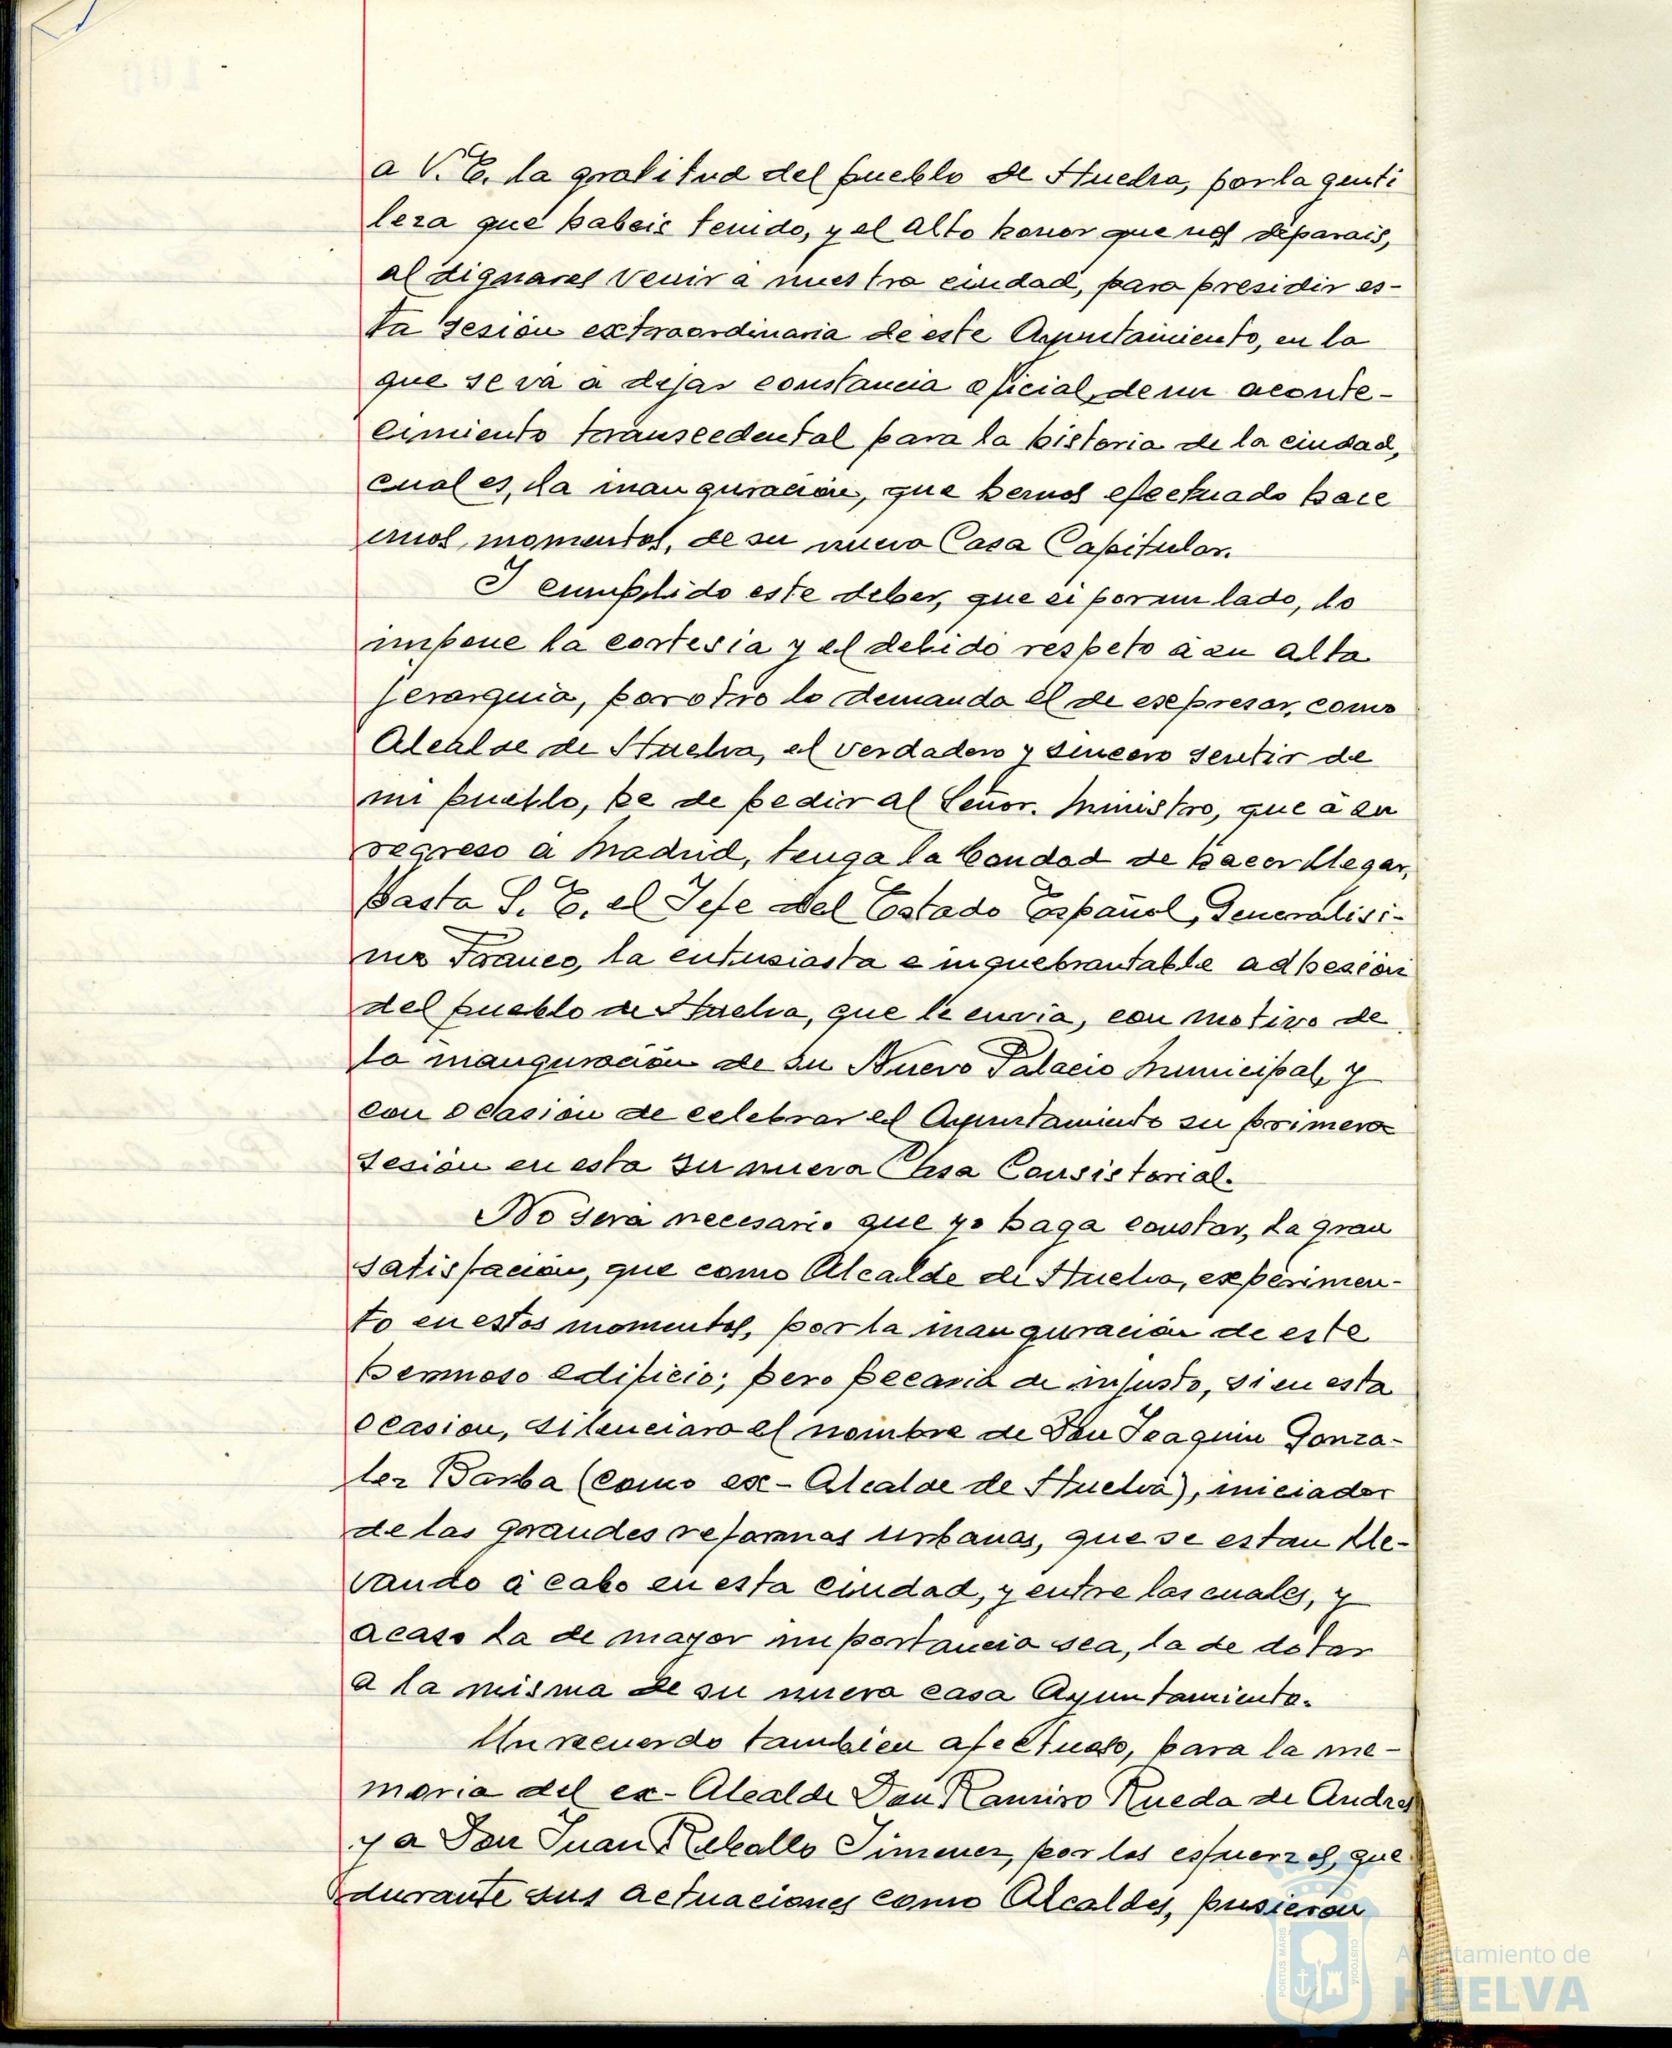 a V. E. la gratitud del pueblo de Huelva, por la genti
leza que habeis tenido, y el alto honor que nos deparais,
al dignaros venir a nuestra ciudad, para presidir es-
ta sesión extraordinaria de este Ayuntamiento, en la
que se va a dejar constancia oficial, de un aconte-
cimiento transcedental para la historia de la ciudad,
cual es, la inauguración, que hemos efectuado hace
unos momentos, de su nueva Casa Capitular.
I cumplido este deber, que si por un lado, lo
impone la cortesia y el debido respeto a su alta
jerarquia, por otro lo demanda el de expresar, como
Alcalde de Huelva, el verdadero y sincero sentir de
mi pueblo, he de pedir al Señor. Ministro, que a su
regreso a Madrid, tenga la bondad de hacer llegar,
hasta S. E. el Jefe del Estado Español, Generalisi-
mo Franco, la entusiasta e inquebrantable adhesión
del pueblo de Huelva, que le envia, con motivo de
la inauguración de su Nuevo Palacio Municipal, y
con ocasión de celebrar el Ayuntamiento su primera
sesión en esta su nueva Casa Consistorial.
No será necesario que yo haga constar, la gran
satisfación, que como Alcalde de Huelva, experimen-
to en estos momentos, por la inauguración de este
hermoso edificio; pero pecaria de injusto, si en esta
ocasion, silenciara el nombre de Don Joaquin Gonza-
lez Barba (como ex-Alcalde de Huelva), iniciador
de las grandes reformas urbanas, que se estan lle-
vando a cabo en esta ciudad, y entre las cuales, y
acaso la de mayor importancia sea, la de dotar
a la misma de su nueva casa Ayuntamiento.
Un recuerdo tambien afectuoso, para la me-
moria del ex-Alcalde Don Ramiro Rueda de Andres
y a Don Juan Rebollo Jimenez, por los esfuerzos, que
durante sus actuaciones como Alcaldes, pusieron
PORTUS MARIS CUSTODIA
Ayuntamiento de
HUELVA